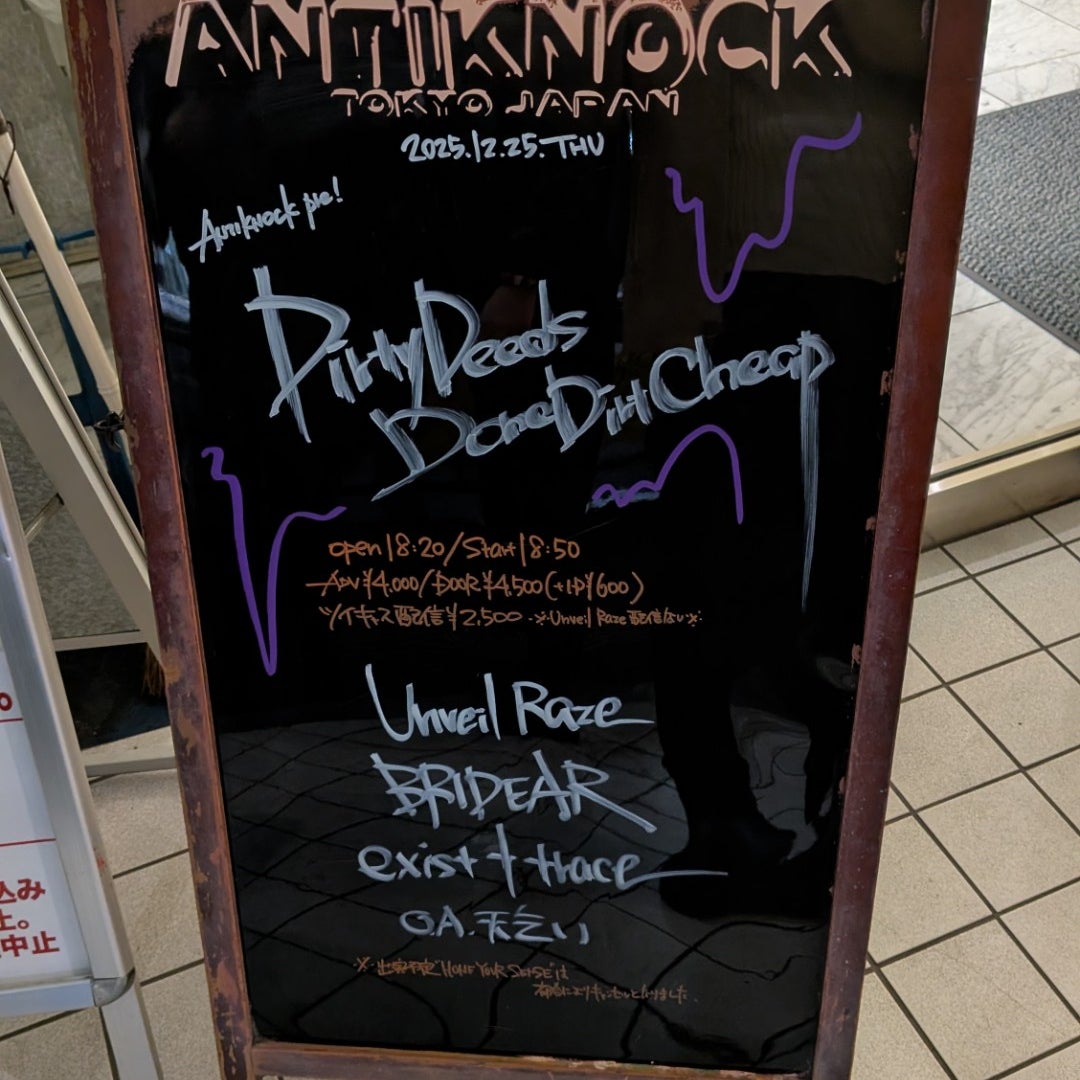 ANTIKNOCK
TOKYO JAPAN
2025.12.25.THU
Antiknock pre!
Dirty Deeds
Done Dirt Cheap
open 18:20/Start 18:50
ADV ¥4,000/DOOR ¥4,500(+1D¥600)
ツイキャス配信¥2,500 ※Unveil Raze 配信ない※
Unveil Raze
BRIDEAR
exist†trace
O.A.天乞い
※出演予定"HONE YOUR SENSE"は
都合によりキャンセルとなりました。
込み
止。
中止